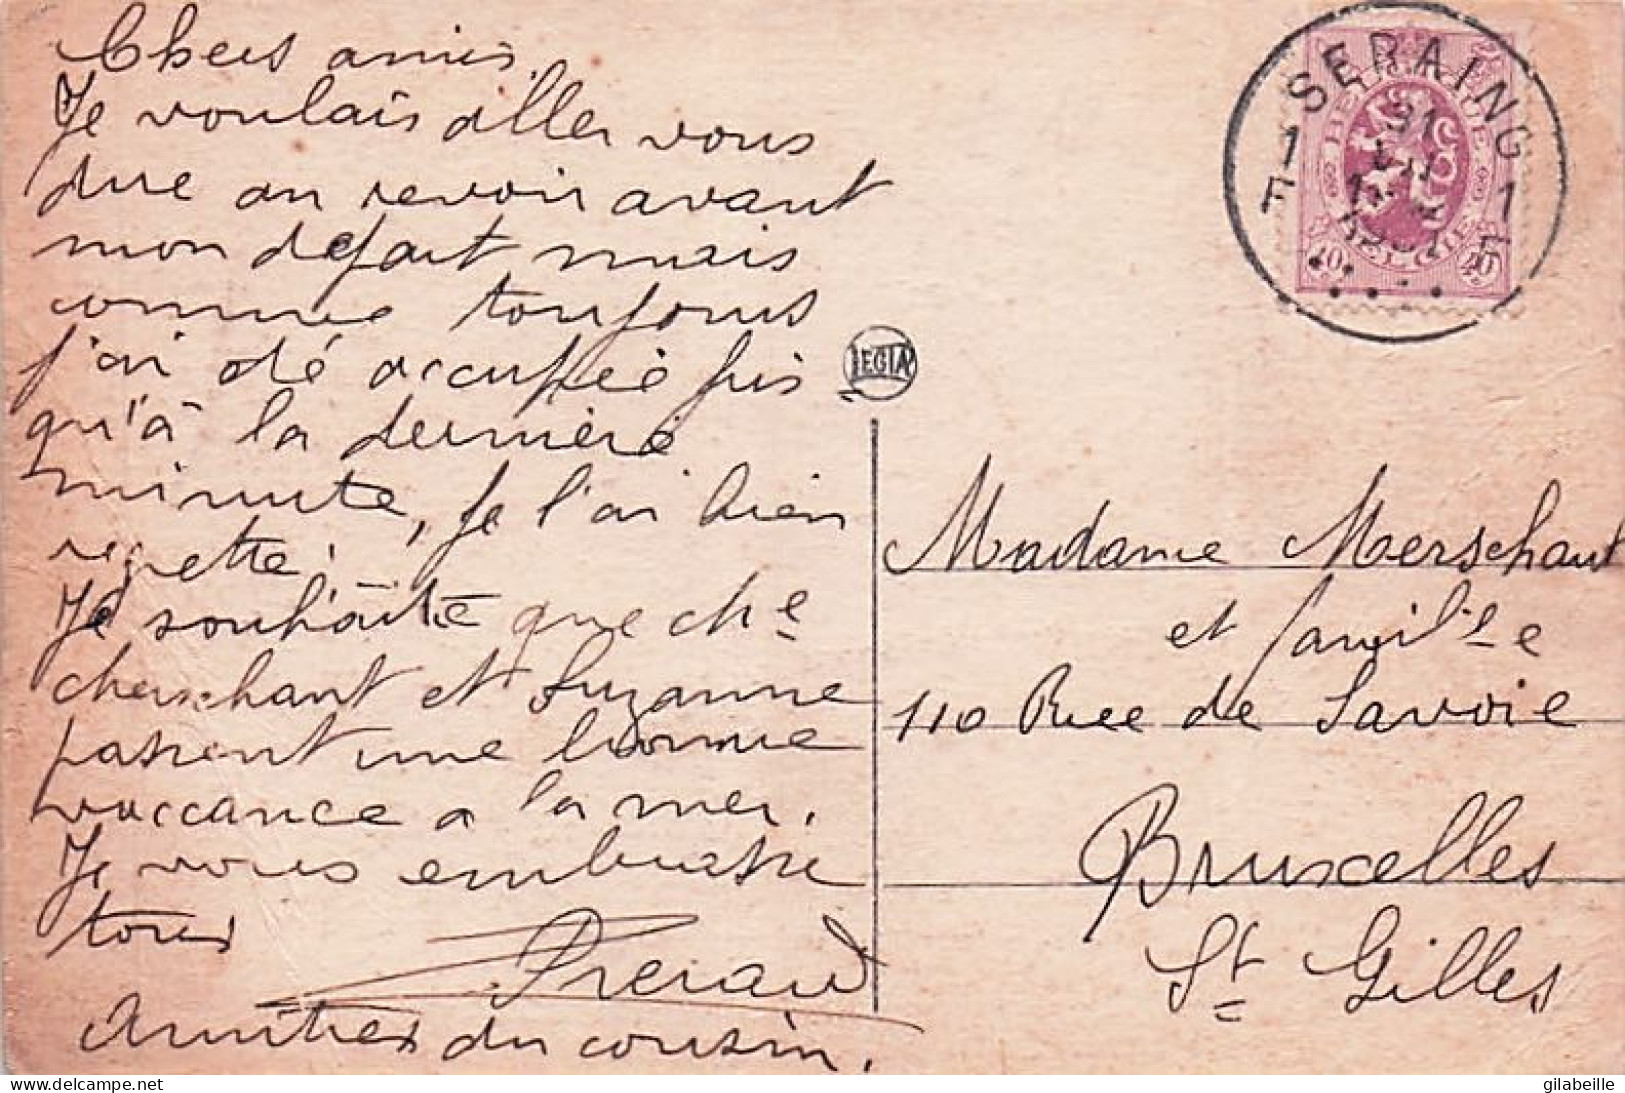 Chers amis,
Je voulais aller vous
dire au revoir avant
mon départ mais
comme toujours
j'ai été occupée jus
qu'à la dernière
minute, je l'ai bien
regretté.
Je souhaite que chᵉ
cherschant et Suzanne
passent une bonne
vaccance a la mer.
Je vous embrasse
tous
Amitiés du cousin.
LEGIA
SERAING
1 31 1
F F
BELGIQUE
BELGIE
40 40
Madame Merschaut
et famille
110 Rue de Savoie
Bruxelles
St Gilles
gilabeille